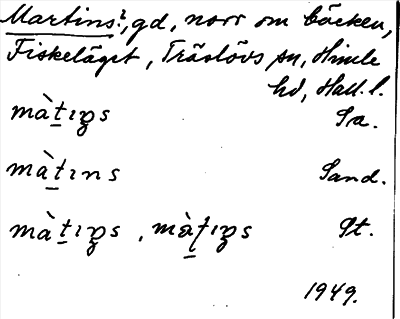 Martins?, gd, norr om bäcken,
Fiskeläget, Träslövs sn, Himle
hd, Hall. l.
màt̲ın̥s Sa.
màt̲ıns Sand.
màt̲ın̥s, màt̲ın̥s St.
1949.